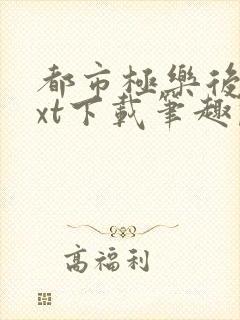 都市極樂後
xt下載筆趣
高福利